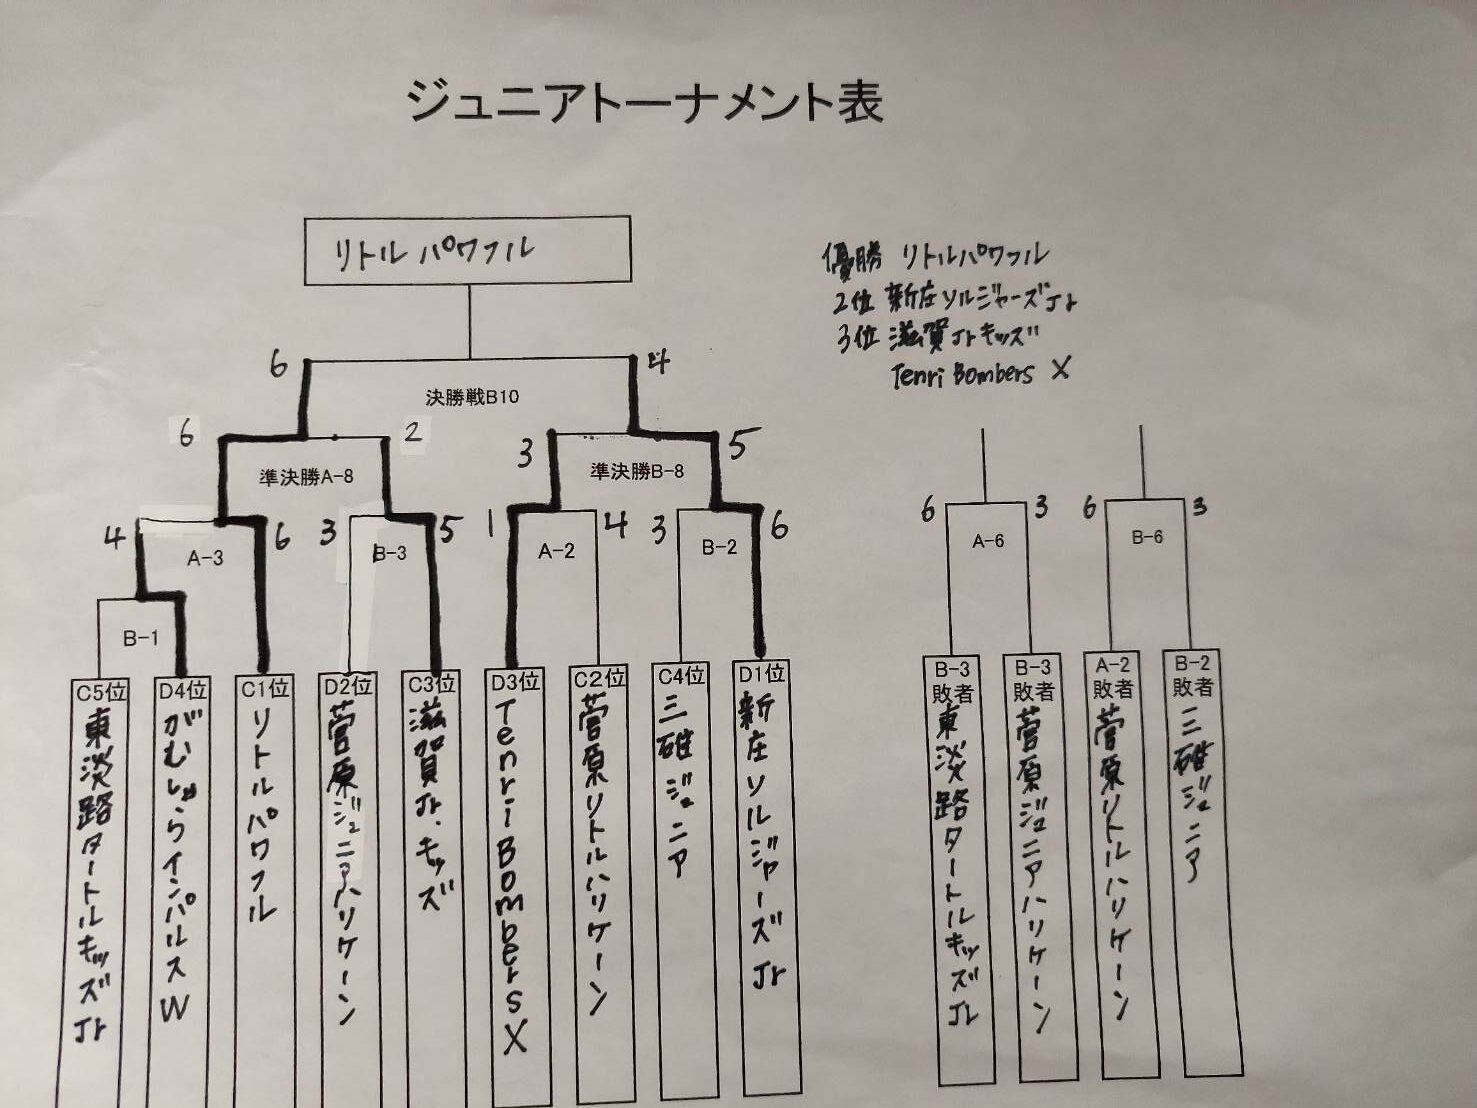 ジュニアトーナメント表
リトルパワフル
優勝 リトルパワフル
2位 新庄ソルジャーズJr
3位 滋賀Jrキッズ
Tenri Bombers X
6 4
決勝戦B10
6 2 3 5
準決勝A-8 準決勝B-8
4 6 3 5 1 4 3 6
A-3 B-3 A-2 B-2
B-1
6 3 6 3
A-6 B-6
C5位 東淡路タートルキッズJr
D4位 がむしゃらインパルスW
C1位 リトルパワフル
D2位 菅原ジュニアハリケーン
C3位 滋賀Jr.キッズ
D3位 Tenri Bombers X
C2位 菅原リトルハリケーン
C4位 三碓ジュニア
D1位 新庄ソルジャーズJr
B-3敗者 東淡路タートルキッズJr
B-3敗者 菅原ジュニアハリケーン
A-2敗者 菅原リトルハリケーン
B-2敗者 三碓ジュニア